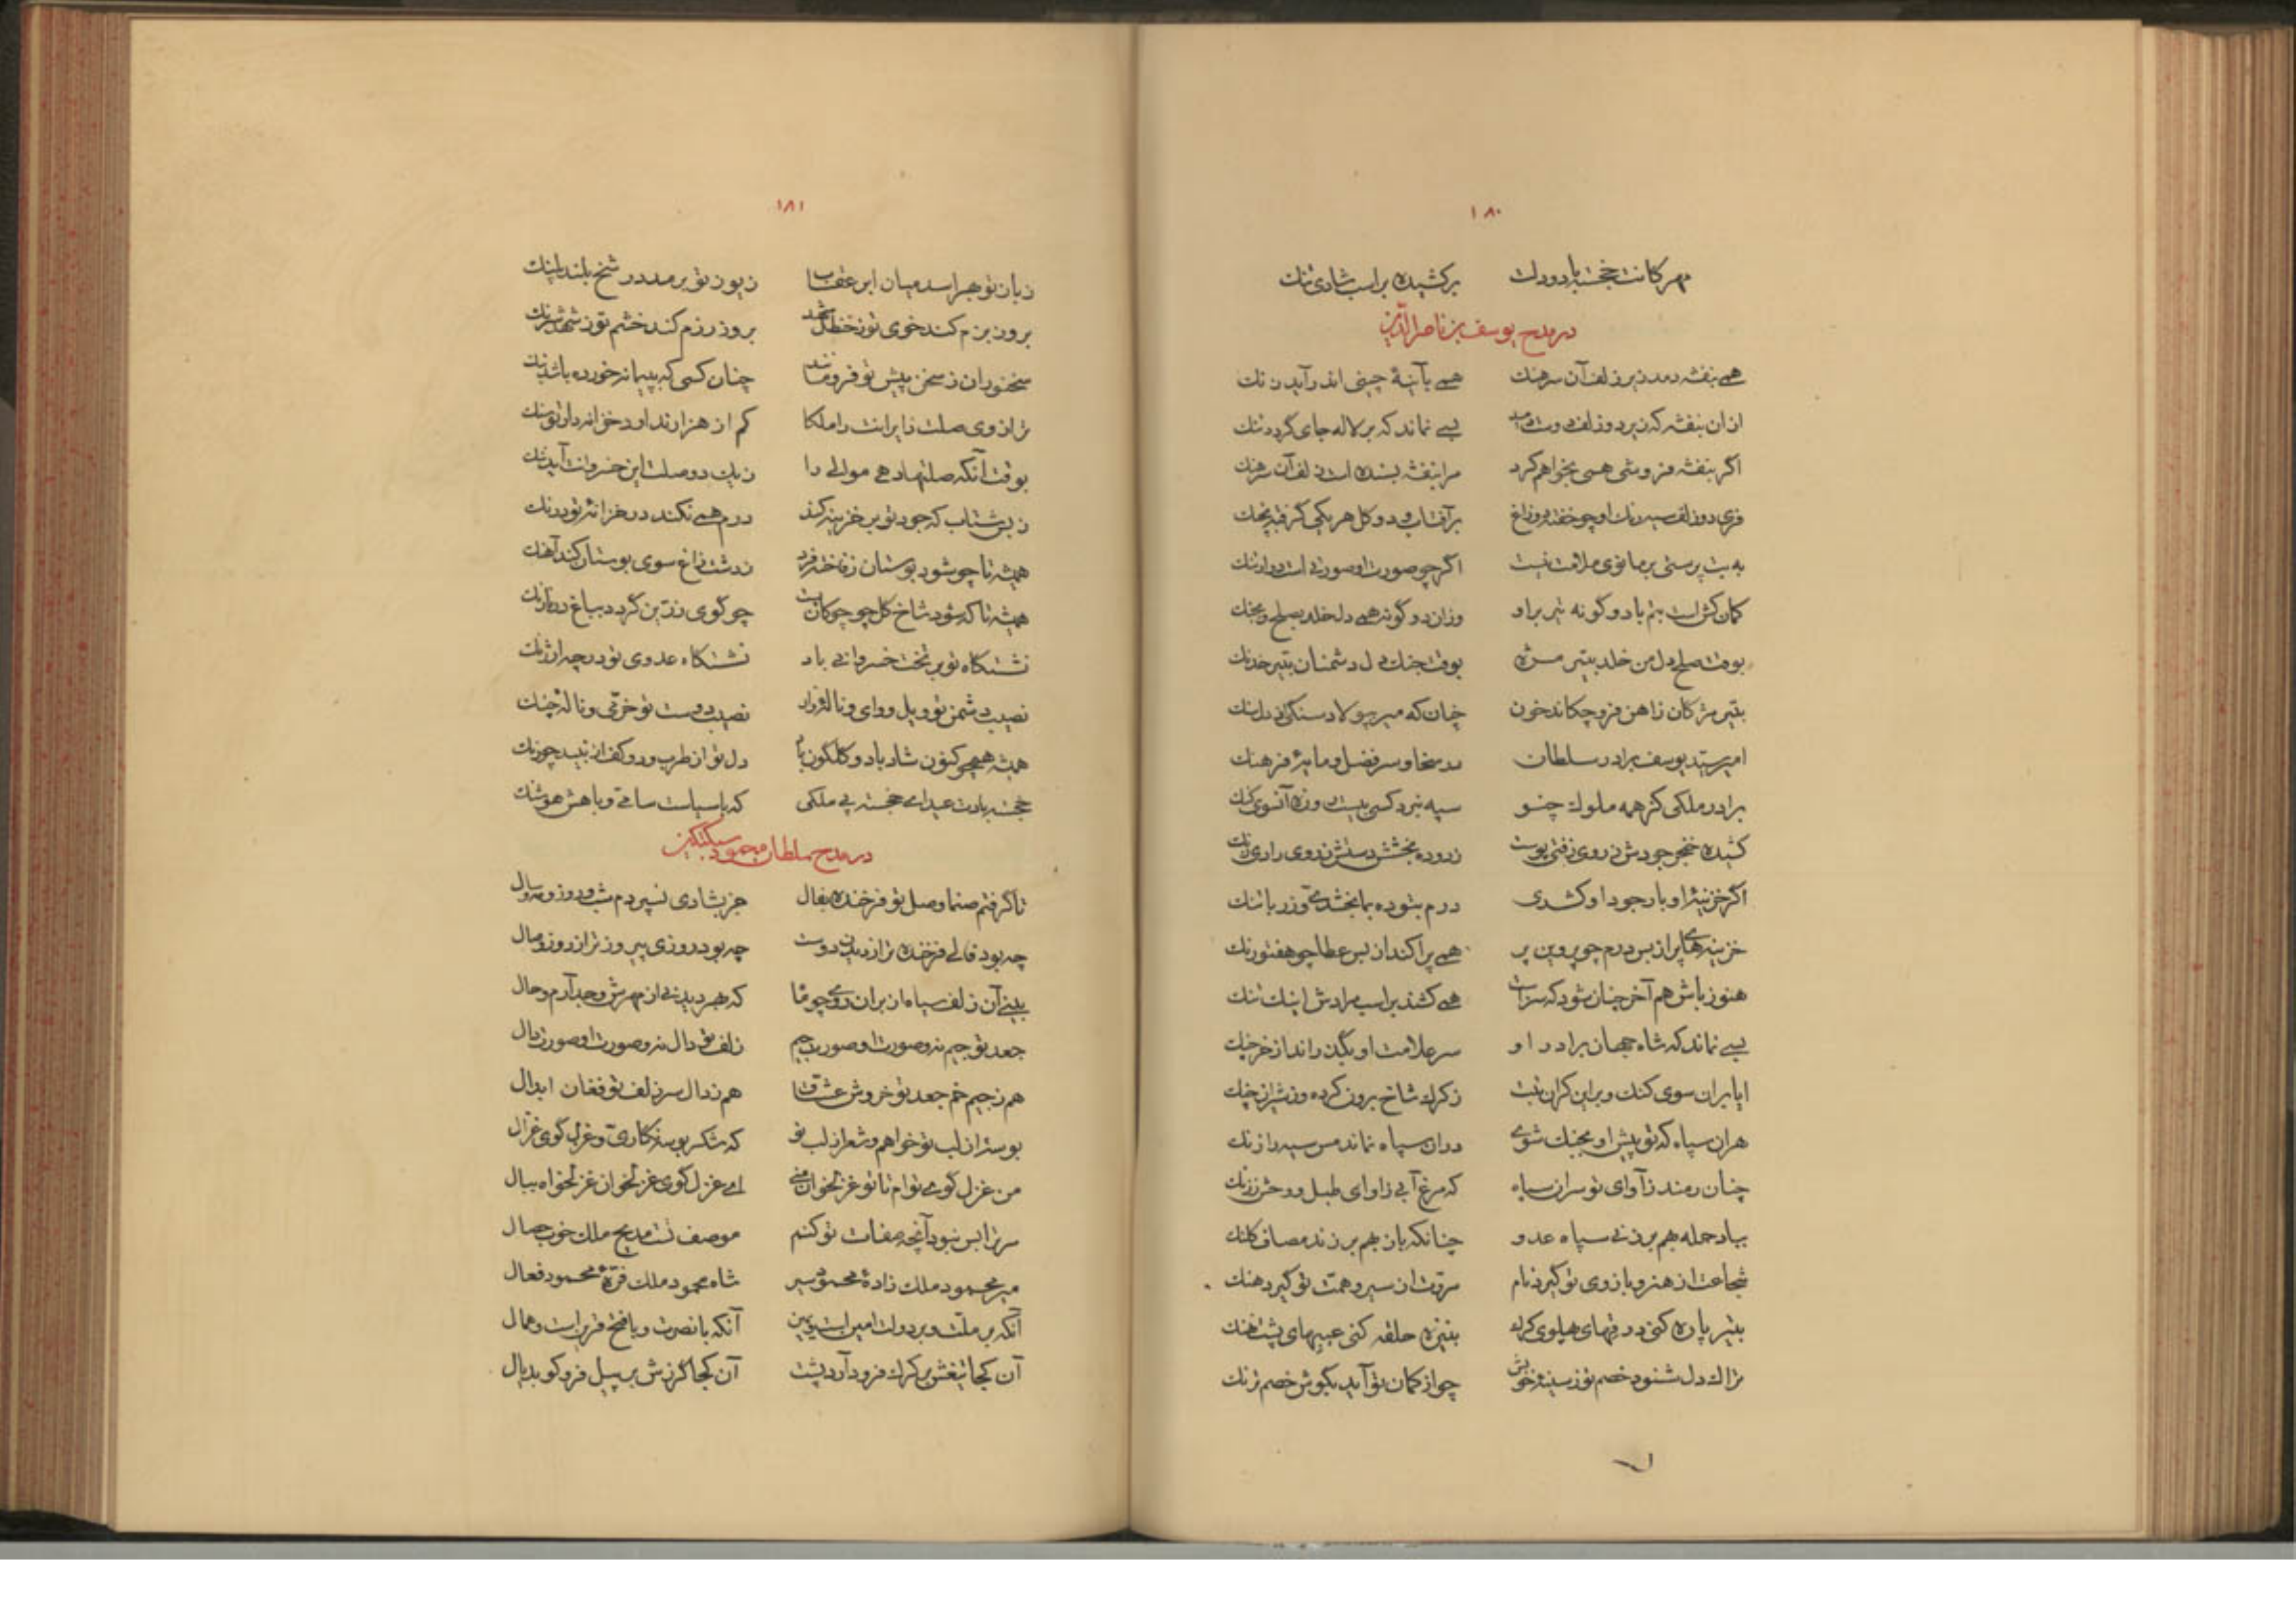 ۱۸۰
مهرکانت خجسته باد و دلت برکشیده بر اسب شادی تنك
در مدح یوسف بن ناصر الدین
همی بنفشه دمد زیر زلف آن سرهنك همی بآینهٔ چینی اندر آید زنك
ازان بنفشه که زیر دو زلف دوست دمید بسی نماند که بر لاله جای گردد تنك
اگر بنفشه فروشی همی بخواهم کرد مرا بنفشه بسنده است زلف آن سرهنك
فری دو زلف سیه رنك او چو خفته دو زاغ برآفتاب و دو گل هر یکی گرفته بچنك
به بت پرستی بر مانوی ملامت نیست اگر چو صورت او صورتی است در ارتنك
کمان کش است بتم با دو گونه تیر بر او وزان دو گونه همی دل خلد بصلح و بجنك
بوقت صلح دل من خلد بتیر مژه بوقت جنك دل دشمنان بتیر خدنك
بتیر مژگان ز اهن فرو چکاند خون چنان که میر بپولاد سنگ از دل سنك
امیر سید یوسف برادر سلطان در سخا و سر فضل و مایهٔ فرهنك
برادر ملکی کز همه ملوك چنو سپه نبرد کسی بیست روزه آنسوی کنك
کشیده خنجر جودش ز روی زفتی پوست زدوده بخشش دستش ز روی رادی زنك
اگر خزینهٔ او بار جود او کشدی درم بتوده ببخشدی و زر باتنك
خزینهای پر از بس درم چو پروین پر همی پراکند از بس عطا چو هفتورنك
هنوز باش هم آخر چنان شود که سزاست همی کشند بر اسب مرادش اینك تنك
بسی نماند که شاه جهان برادر او سر علامت او بگذراند از خرچنك
ایا بران سوی کنك و براین کران تبت ز کرك شاخ برون کرده و ز شیران چنك
هران سپاه که تو پیش او بجنك شوی دران سپاه نماند مس سپه را زنك
چنان رمند ز آوای تو سران سپاه که مرغ آبی ز اوای طبل و وحش ز زنك
بباد حمله بهم برزنی سپاه عدو چنانکه باز بهم بر زند مصاف کلنك
شجاعت از هنر و بازوی تو گیرد نام مروت از سیر و همت تو گیرد هنك
بتیر پاره کنی درقهای پهلوی کرك بنیزه حلقه کنی غیبهای پشت نهنك
تراك دل شنود خصم تو ز سینهٔ خویش چو از کمان تو آید بگوش خصم ترنك
۱۸۱
زبان تو بهراسد میان ابر عقاب ز یوز تو برمد در شخ بلند پلنك
بروز بزم کند خوی تو ز حنظل شهد بروز رزم کند خشم تو ز شهد شرنك
سخنوران ز سخن پیش تو فرو مانند چنان کسی که بپیمانه خورده باشد بنك
ترازوی صلت زایرانت را ملکا کم از هزار نداود خزانه دار تو سنك
بوقت آنکه صلتها دهی موالی را ز یك دو صلت این خسروانت آید ننك
ز بس شتاب که جود تو بر خزینه کند درم همی نکند در خزانهٔ تو درنك
همیشه تا چو شود بوستان ز فاخته فرد ز دشت زاغ سوی بوستان کند آهنك
همیشه تا که شود شاخ گل چو چوگان پست چو گوی زرین گردد بباغ در نارنك
نشستگاه تو بر تخت خسروانی باد نشستگاه عدوی تو در چه ارژنك
نصیب دشمن تو ویل و وای و نالهٔ زار نصیب دوست تو خرّمی و نالهٔ چنك
همیشه همچو کنون شاد باد و گلگون باد دل تو از طرب و دو کف از نبید چو زنك
خجسته بادت عید ای خجسته پی ملکی که با سیاست سامی و با هش هوشنك
در مدح سلطان محمود سبکتکین
تا گرفتم صنما وصل تو فرخنده بفال جز بشادی نسپردم شب و روز و مه و سال
چه بود فالی فرخنده تر از دیدن دوست چه بود روزی پیروز تر از روز وصال
بینی آن زلف سیاه از بر آن روی چو ماه که بهر دیدنی از مهرش وجد آرم و حال
جعد تو جیم نه و صورت او صورت جیم زلف تو دال نه و صورت او صورت دال
هم ز جیم خم جعد تو خروش عشاق هم ز دال سر زلف تو فغان ابدال
بوسه از لب تو خواهم و شعر از لب تو که شکر بوسه نگاری و غزل گوی غزال
من غزل گوی توام تا تو غزلخوان منی ای غزل گوی غزلخوان غزلخواه ببال
سر ترا بس نبود آنچه صفات تو کنم موصفت مدیح ملك خوب جمال
میر محمود ملك زادهٔ محمود سیر شاه محمود ملك فرّهٔ محمود فعال
آنکه بر ملت و بر دولت امین است و یمین آنکه با نصرت و با فتح قرین است و همال
آن کجا تیغش بر کرك فرود آرد پشت آن کجا گرزش بر پیل فرو کوبد یال